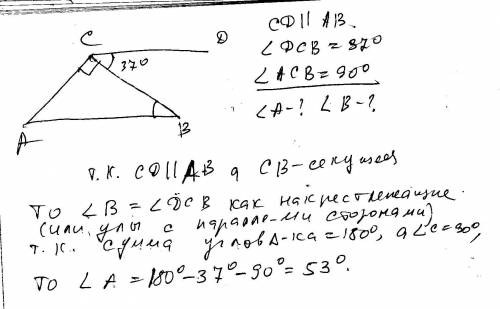 C
D
37°
A
B
CD || AB.
∠DCB = 37°
∠ACB = 90°
∠A-? ∠B-?
т.к. CD || AB а CB - секущая
то ∠B = ∠DCB как накрест лежащие.
(или углы с паралл-ми сторонами)
т.к. сумма углов Δ-ка = 180°, а ∠C = 90°,
то ∠A = 180° - 37° - 90° = 53°.